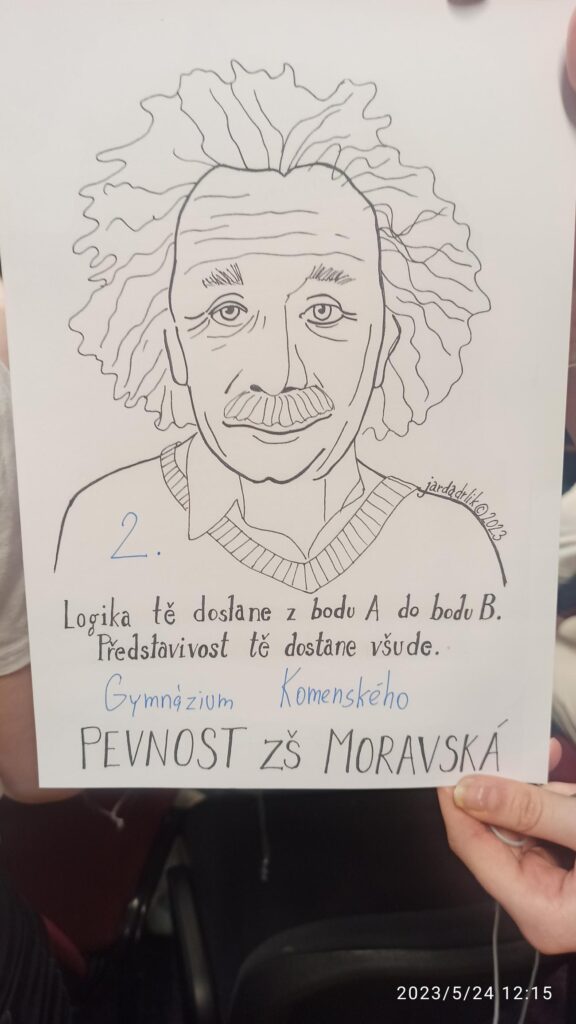 jardadrlik©2023
2.
Logika tě dostane z bodu A do bodu B.
Představivost tě dostane všude.
Gymnázium Komenského
PEVNOST ZŠ MORAVSKÁ
2023/5/24 12:15